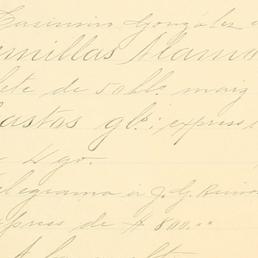 Casimiro González
nillas Alamo
ete de 50 bls maiz
astos gls; express
e 4 go.
legrama á J. G.
xpress de $ 800.00